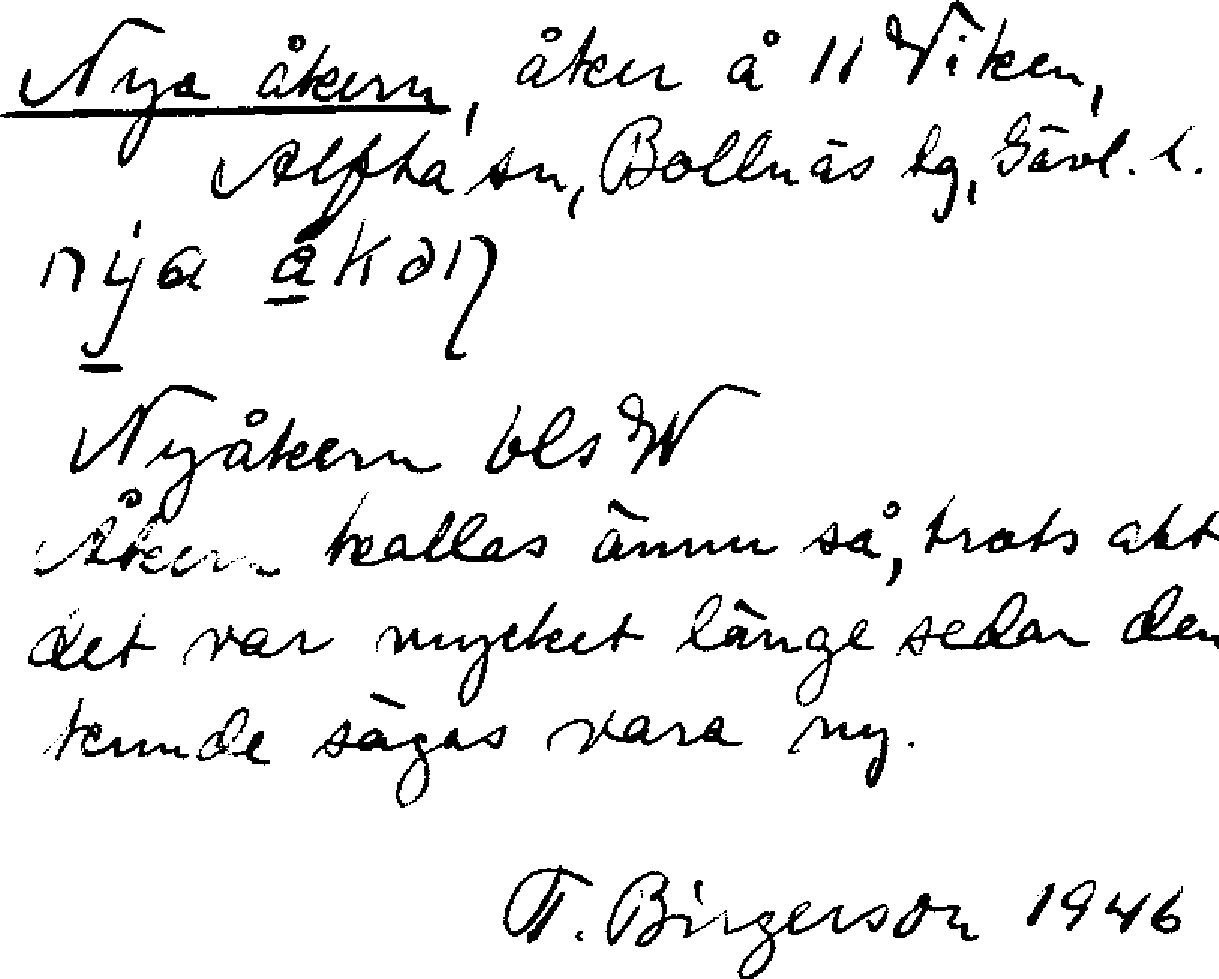 Nya åkern, åker å 11 Viken,
Alfta sn, Bollnäs tg, Gävl. l.
nya åkəɳ
Nyåkern bls W
Åkern kallas ännu så, trots att
det var mycket länge sedan den
kunde sägas vara ny.
F. Birgerson 1946